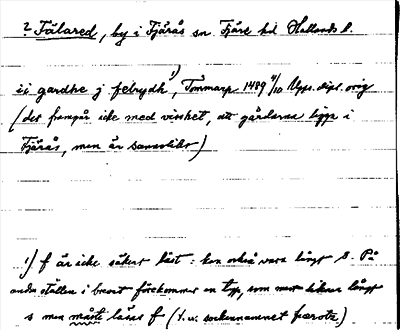 ? Fälared, by i Fjärås sn Fjäre hd Hallands l.
ii gardhe j febrydh 1), Tommarp 1489 4/10 Upps. dipl. orig
(det framgår icke med visshet, att gårdarna ligga i
Fjärås, men är sannolikt)
1) f är icke säkert läst: kan också vara långt s. På
andra ställen i brevet förekommer en typ, som mera liknar långt
s men måste läsas f (t.ex. sockennamnet færotz)